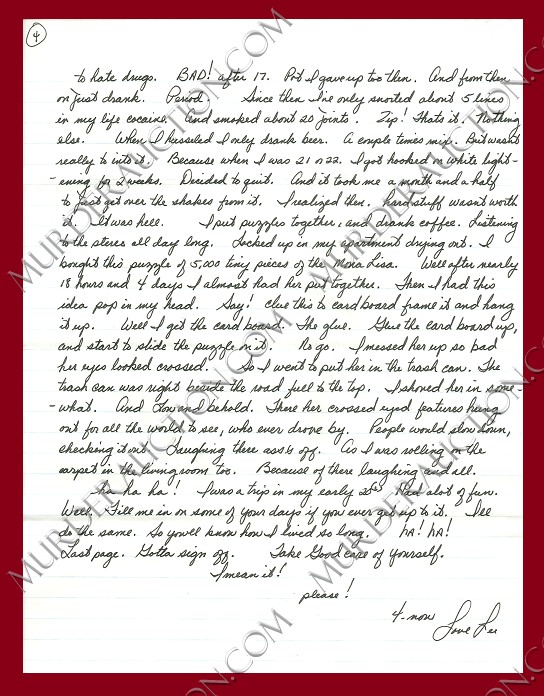 4
to hate drugs. BAD! after 17. Pot I gave up too then. And from then
on just drank. Period. Since then I've only snorted about 5 lines
in my life cocaine. And smoked about 20 joints. Zip! Thats it. Nothing
else. When I husseled I only drank beer. A couple times mix. But wasn't
really to into it. Because when I was 21 or 22. I got hooked on white light-
-ening for 2 weeks. Decided to quit. And it took me a month and a half
to just get over the shakes from it. I realized then. Hard stuff wasn't worth
it. It was hell. I put puzzles together, and drank coffee. Listening
to the stereo all day long. Locked up in my apartment drying out. I
bought this puzzle of 5,000 tiny pieces of the Mona Lisa. Well after nearly
18 hours and 4 days I almost had her put together. Then I had this
idea pop in my head. Say! Glue this to card board frame it and hang
it up. Well I get the card board. The glue. Glue the card board up,
and start to slide the puzzle on it. No go. I messed her up so bad
her eyes looked crossed. So I went to put her in the trash can. The
trash can was right beside the road full to the top. I shoved her in some-
-what. And Low and behold. There her crossed eyed features hung
out for all the world to see, who ever drove by. People would slow down,
checking it out. Laughing there ass's off. As I was rolling on the
carpet in the living room too. Because of there laughing and all.
Ha ha ha! I was a trip in my early 20s. Had alot of fun.
Well. Fill me in on some of your days if you ever get up to it. I'll
do the same. So you'll know how I lived so long. HA! HA!
Last page. Gotta sign off. Take Good care of yourself.
I mean it!
please!
4-now Love Lee
MURDERAUCTION.COM
MURDERAUCTION.COM
MURDERAUCTION.COM
MURDERAUCTION.COM